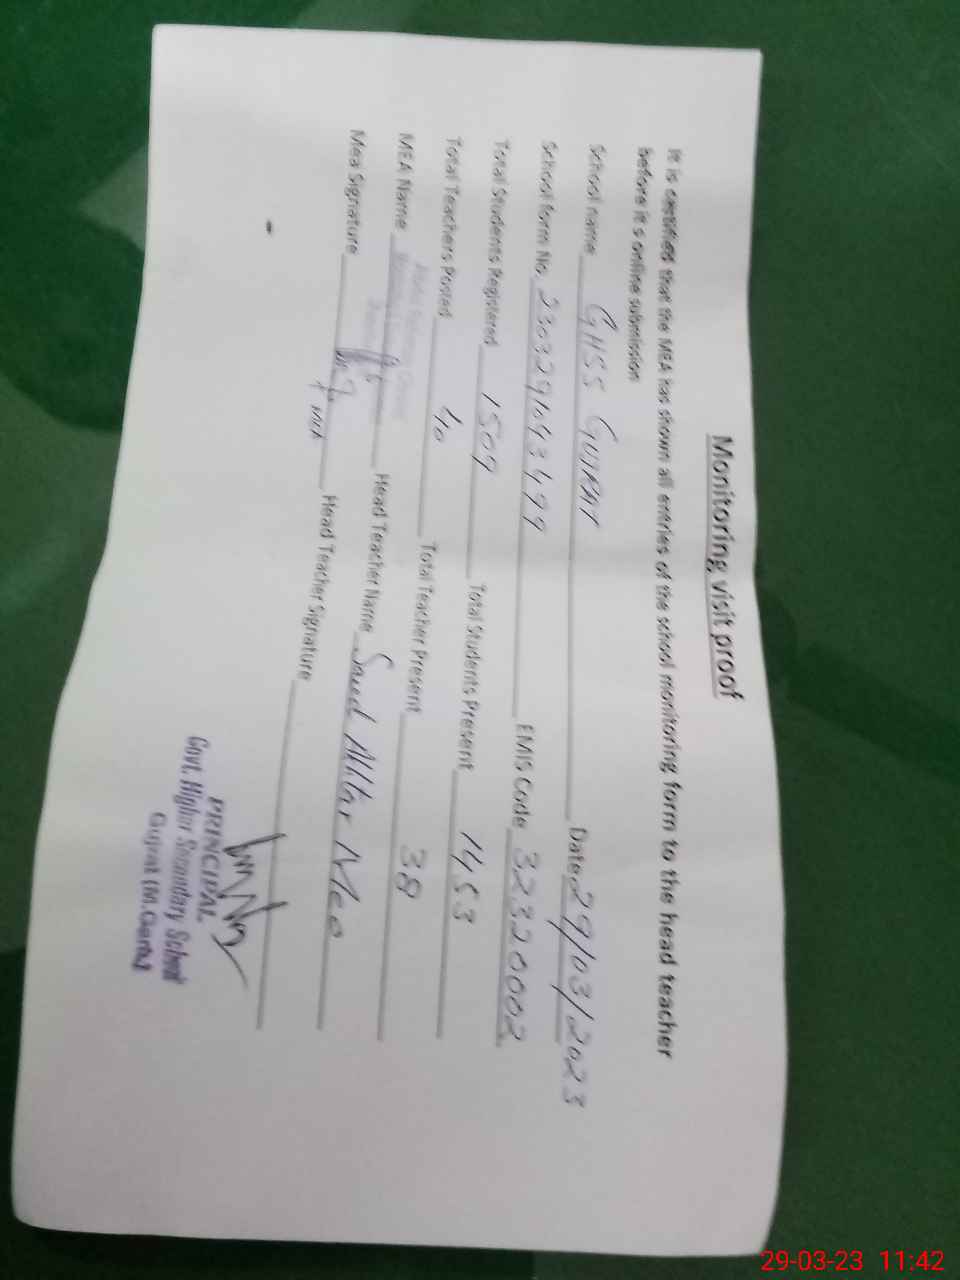 Monitoring visit proof
It is certified that the MEA has shown all entries of the school monitoring form to the head teacher
before it s online submission
School name GHSS GUJRAT Date 29/03/2023
School form No. EMIS Code 32320002
Total Students Registered 1509 Total Students Present 1453
Total Teachers Posted 40 Total Teacher Present 38
MEA Name Head Teacher Name Saeed Akhtar
Mea Signature Head Teacher Signature
MEA
PRINCIPAL
Govt. Higher Secondary School
Gujrat
29-03-23 11:42